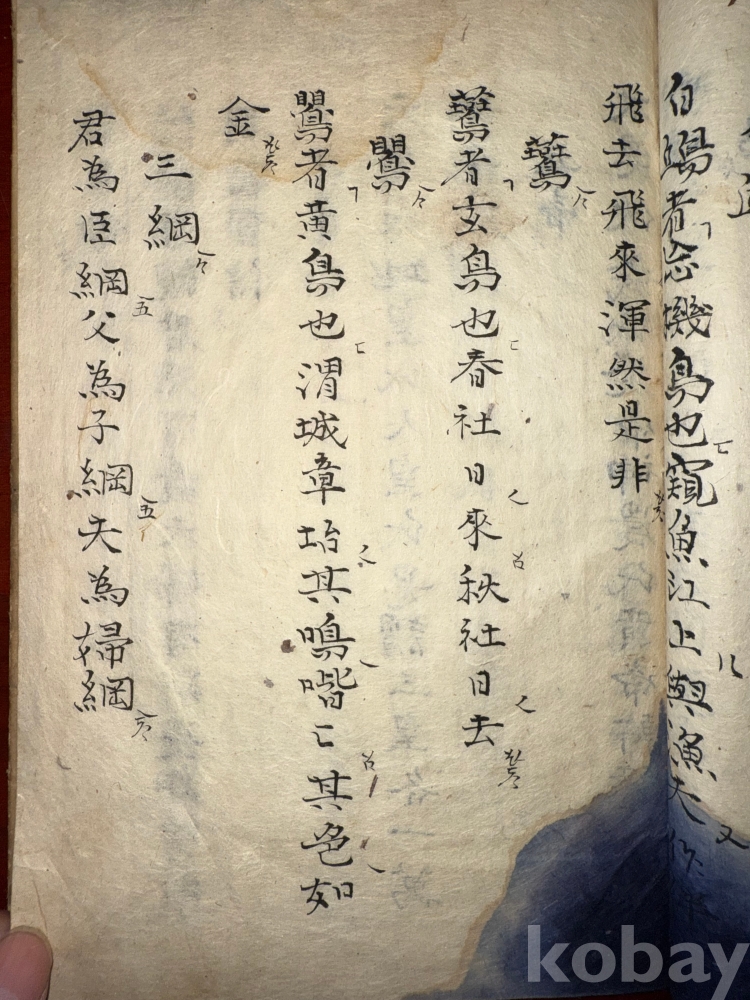 白鷗者忘機鳥也窺魚江上與漁夫作
飛去飛來渾然是非
鷰
鷰者玄鳥也春社日來秋社日去
鸎
鸎者黃鳥也渭城章坮其鳴喈〻其色如
金
三綱
君為臣綱父為子綱夫為婦綱
kobay